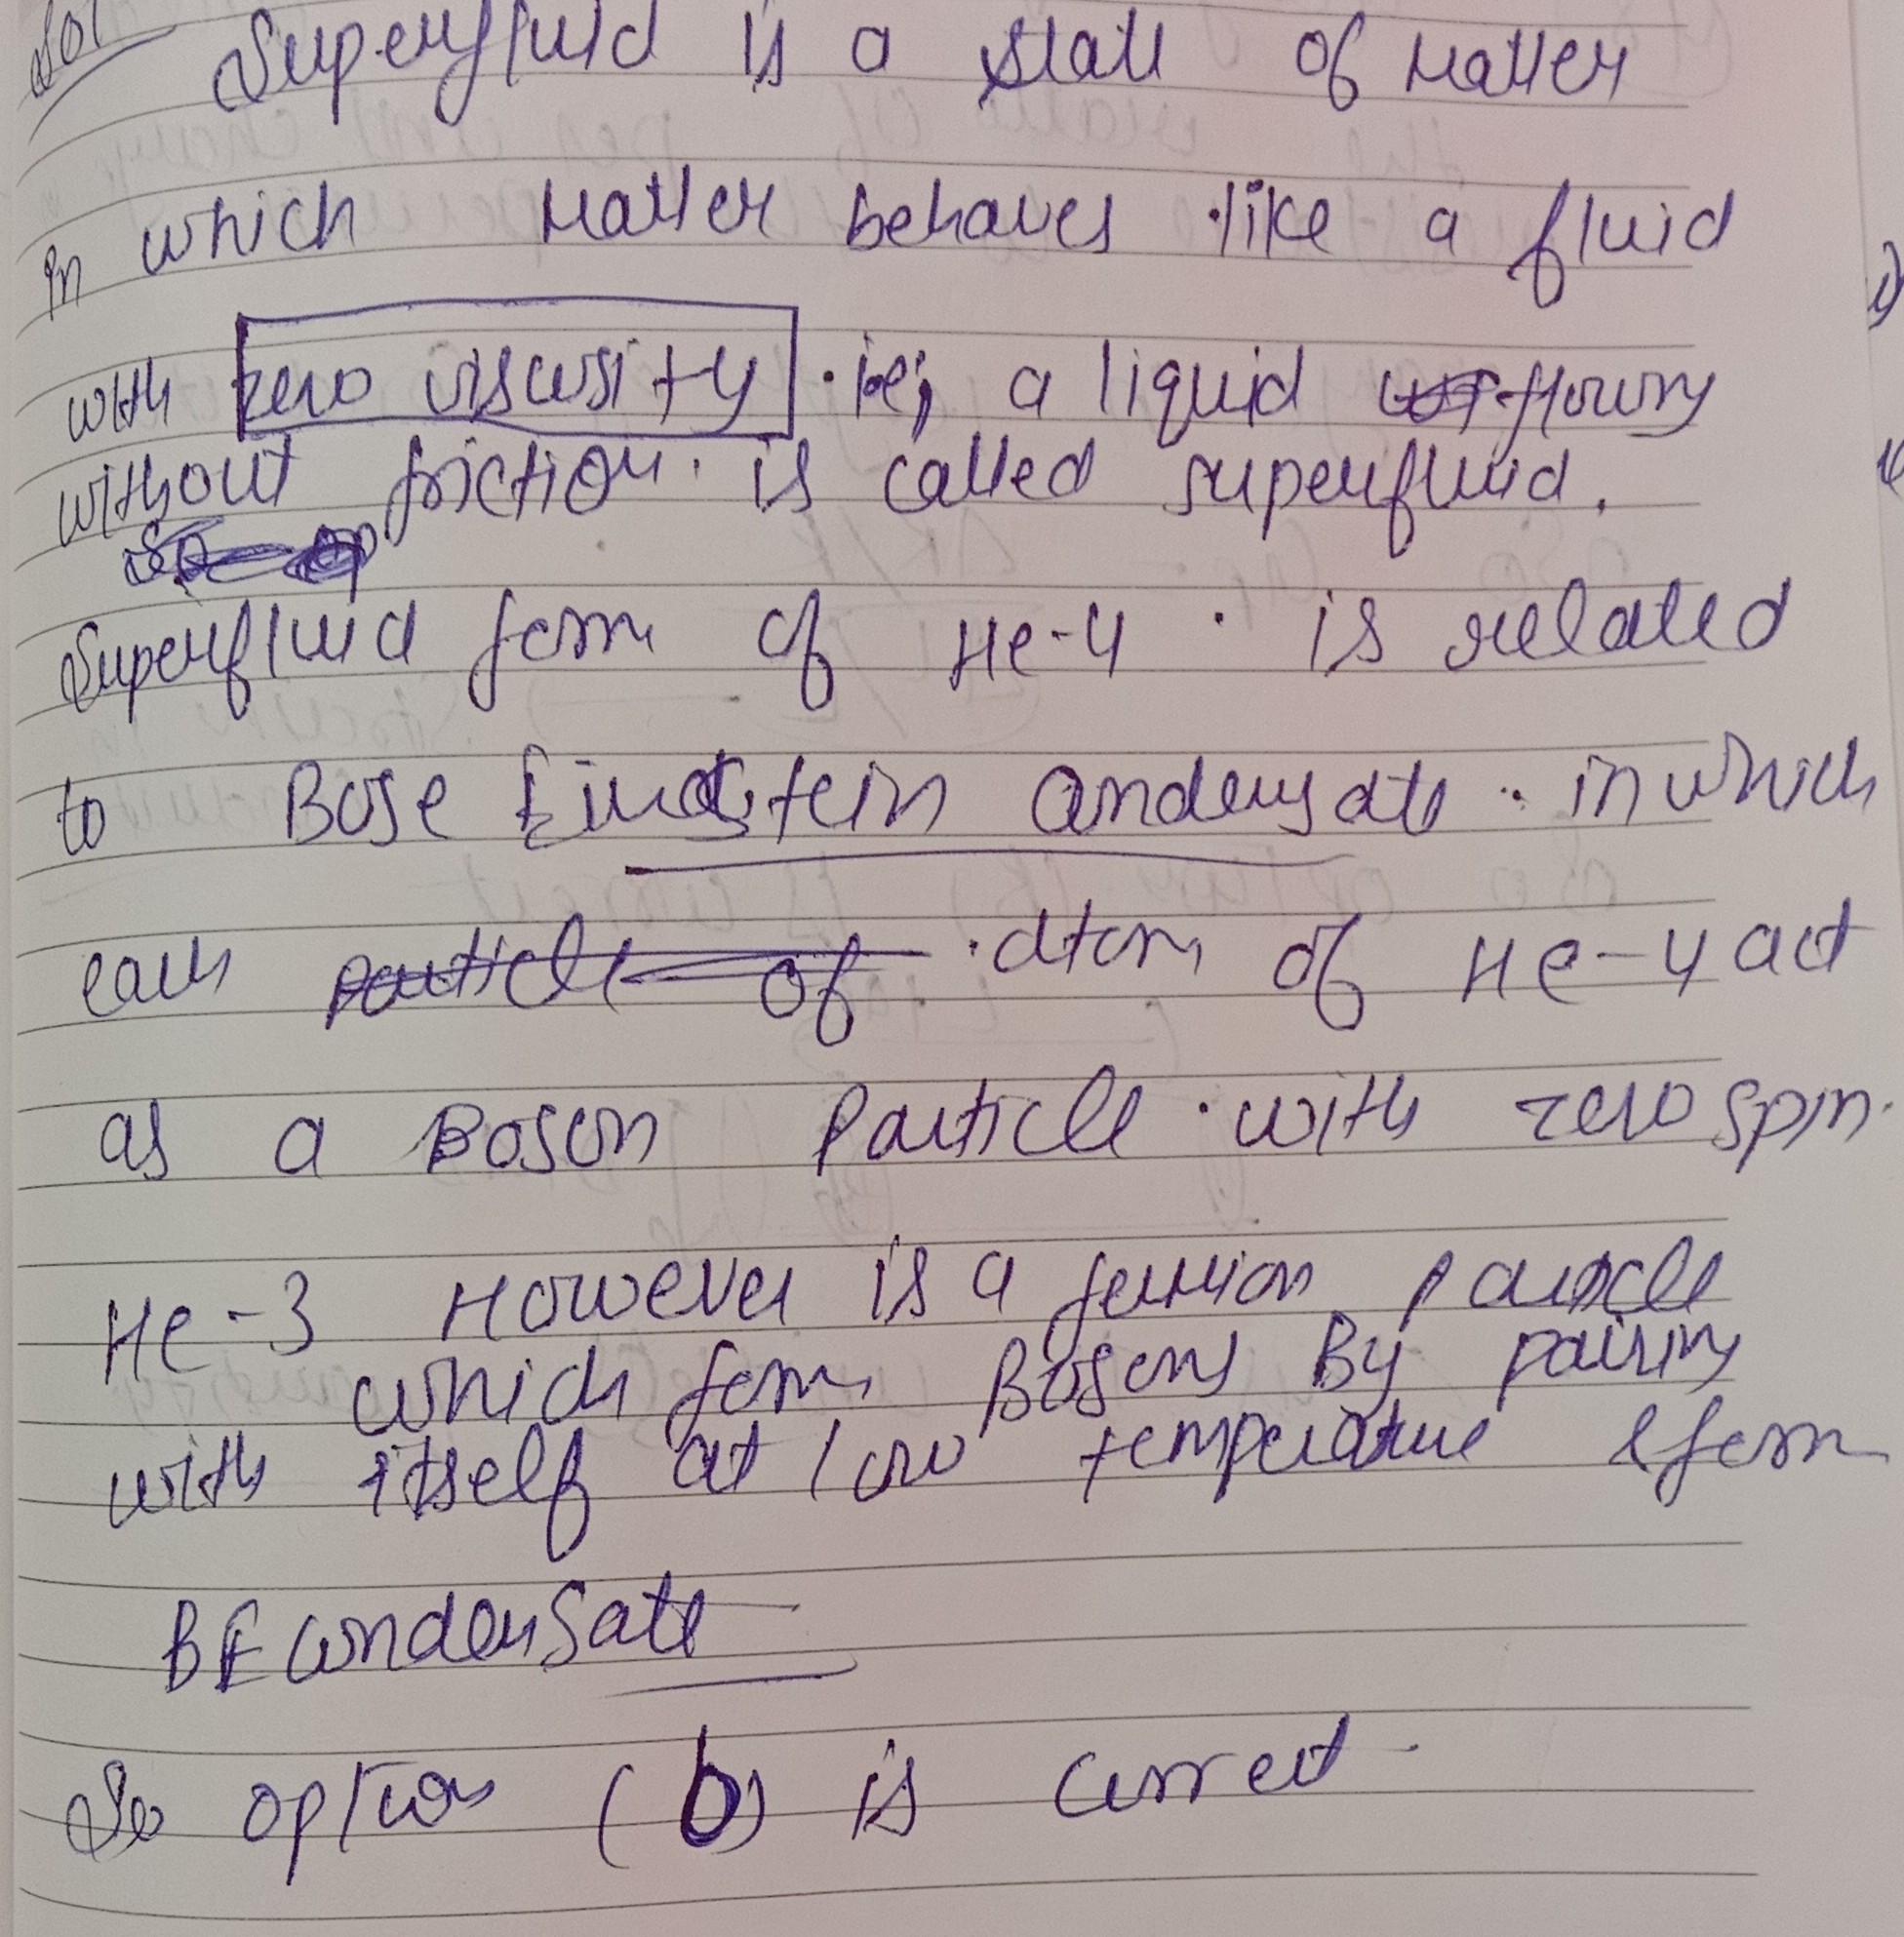 Sol
Superfluid is a state of Matter
in which Matter behaves like a fluid
with zero viscosity . ie; a liquid flowing
without friction . is called superfluid.
Superfluid form of He-4 . is related
to Bose Einstein Condensate . in which
each atom of He-4 act
as a Boson Particle . with zero spin.
He-3 However is a fermion particle
which form Bosons By pairing
with itself at low temperature & form
BE condensate
So option (b) is correct.